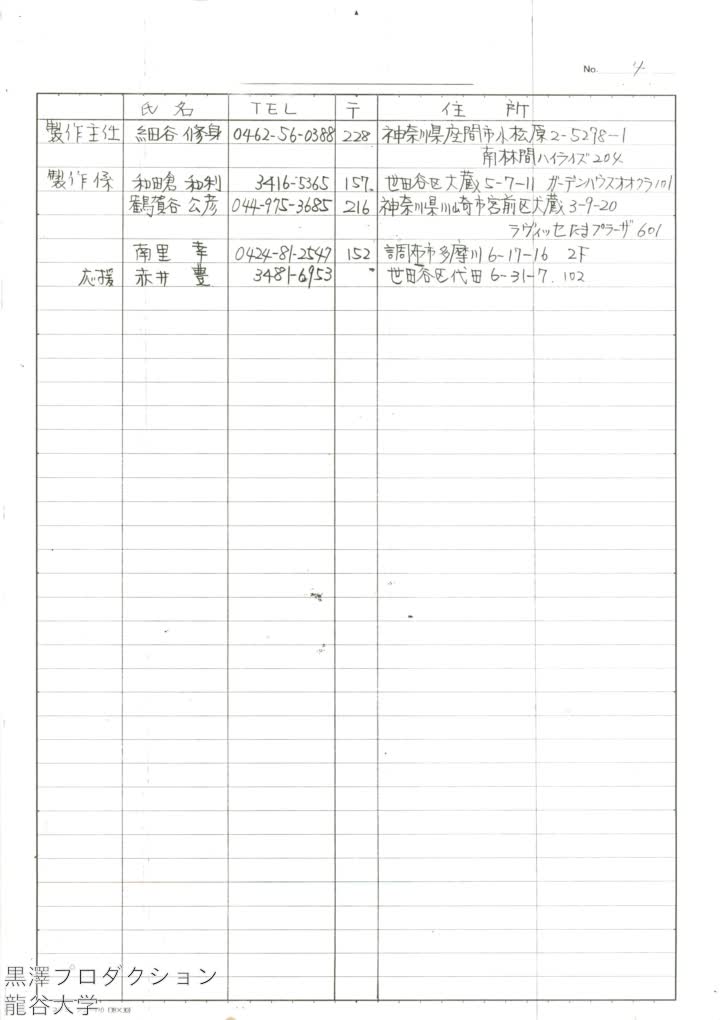 No. 4
氏名 TEL 〒 住所
製作主任 細谷 修身 0462-56-0388 228 神奈川県座間市小松原2-5278-1
南林間ハイライズ204
製作係 和田倉 和利 3416-5365 157 世田谷区大蔵5-7-11 ガーデンハウスオオクラ101
鶴賀谷 公彦 044-975-3685 216 神奈川県川崎市宮前区大蔵3-9-20
ラヴィッセたまプラーザ601
南里 幸 0424-81-2547 152 調布市多摩川6-17-16 2F
応援 赤井 豊 3481-6953 世田谷区代田6-31-7. 102
黒澤プロダクション
龍谷大学